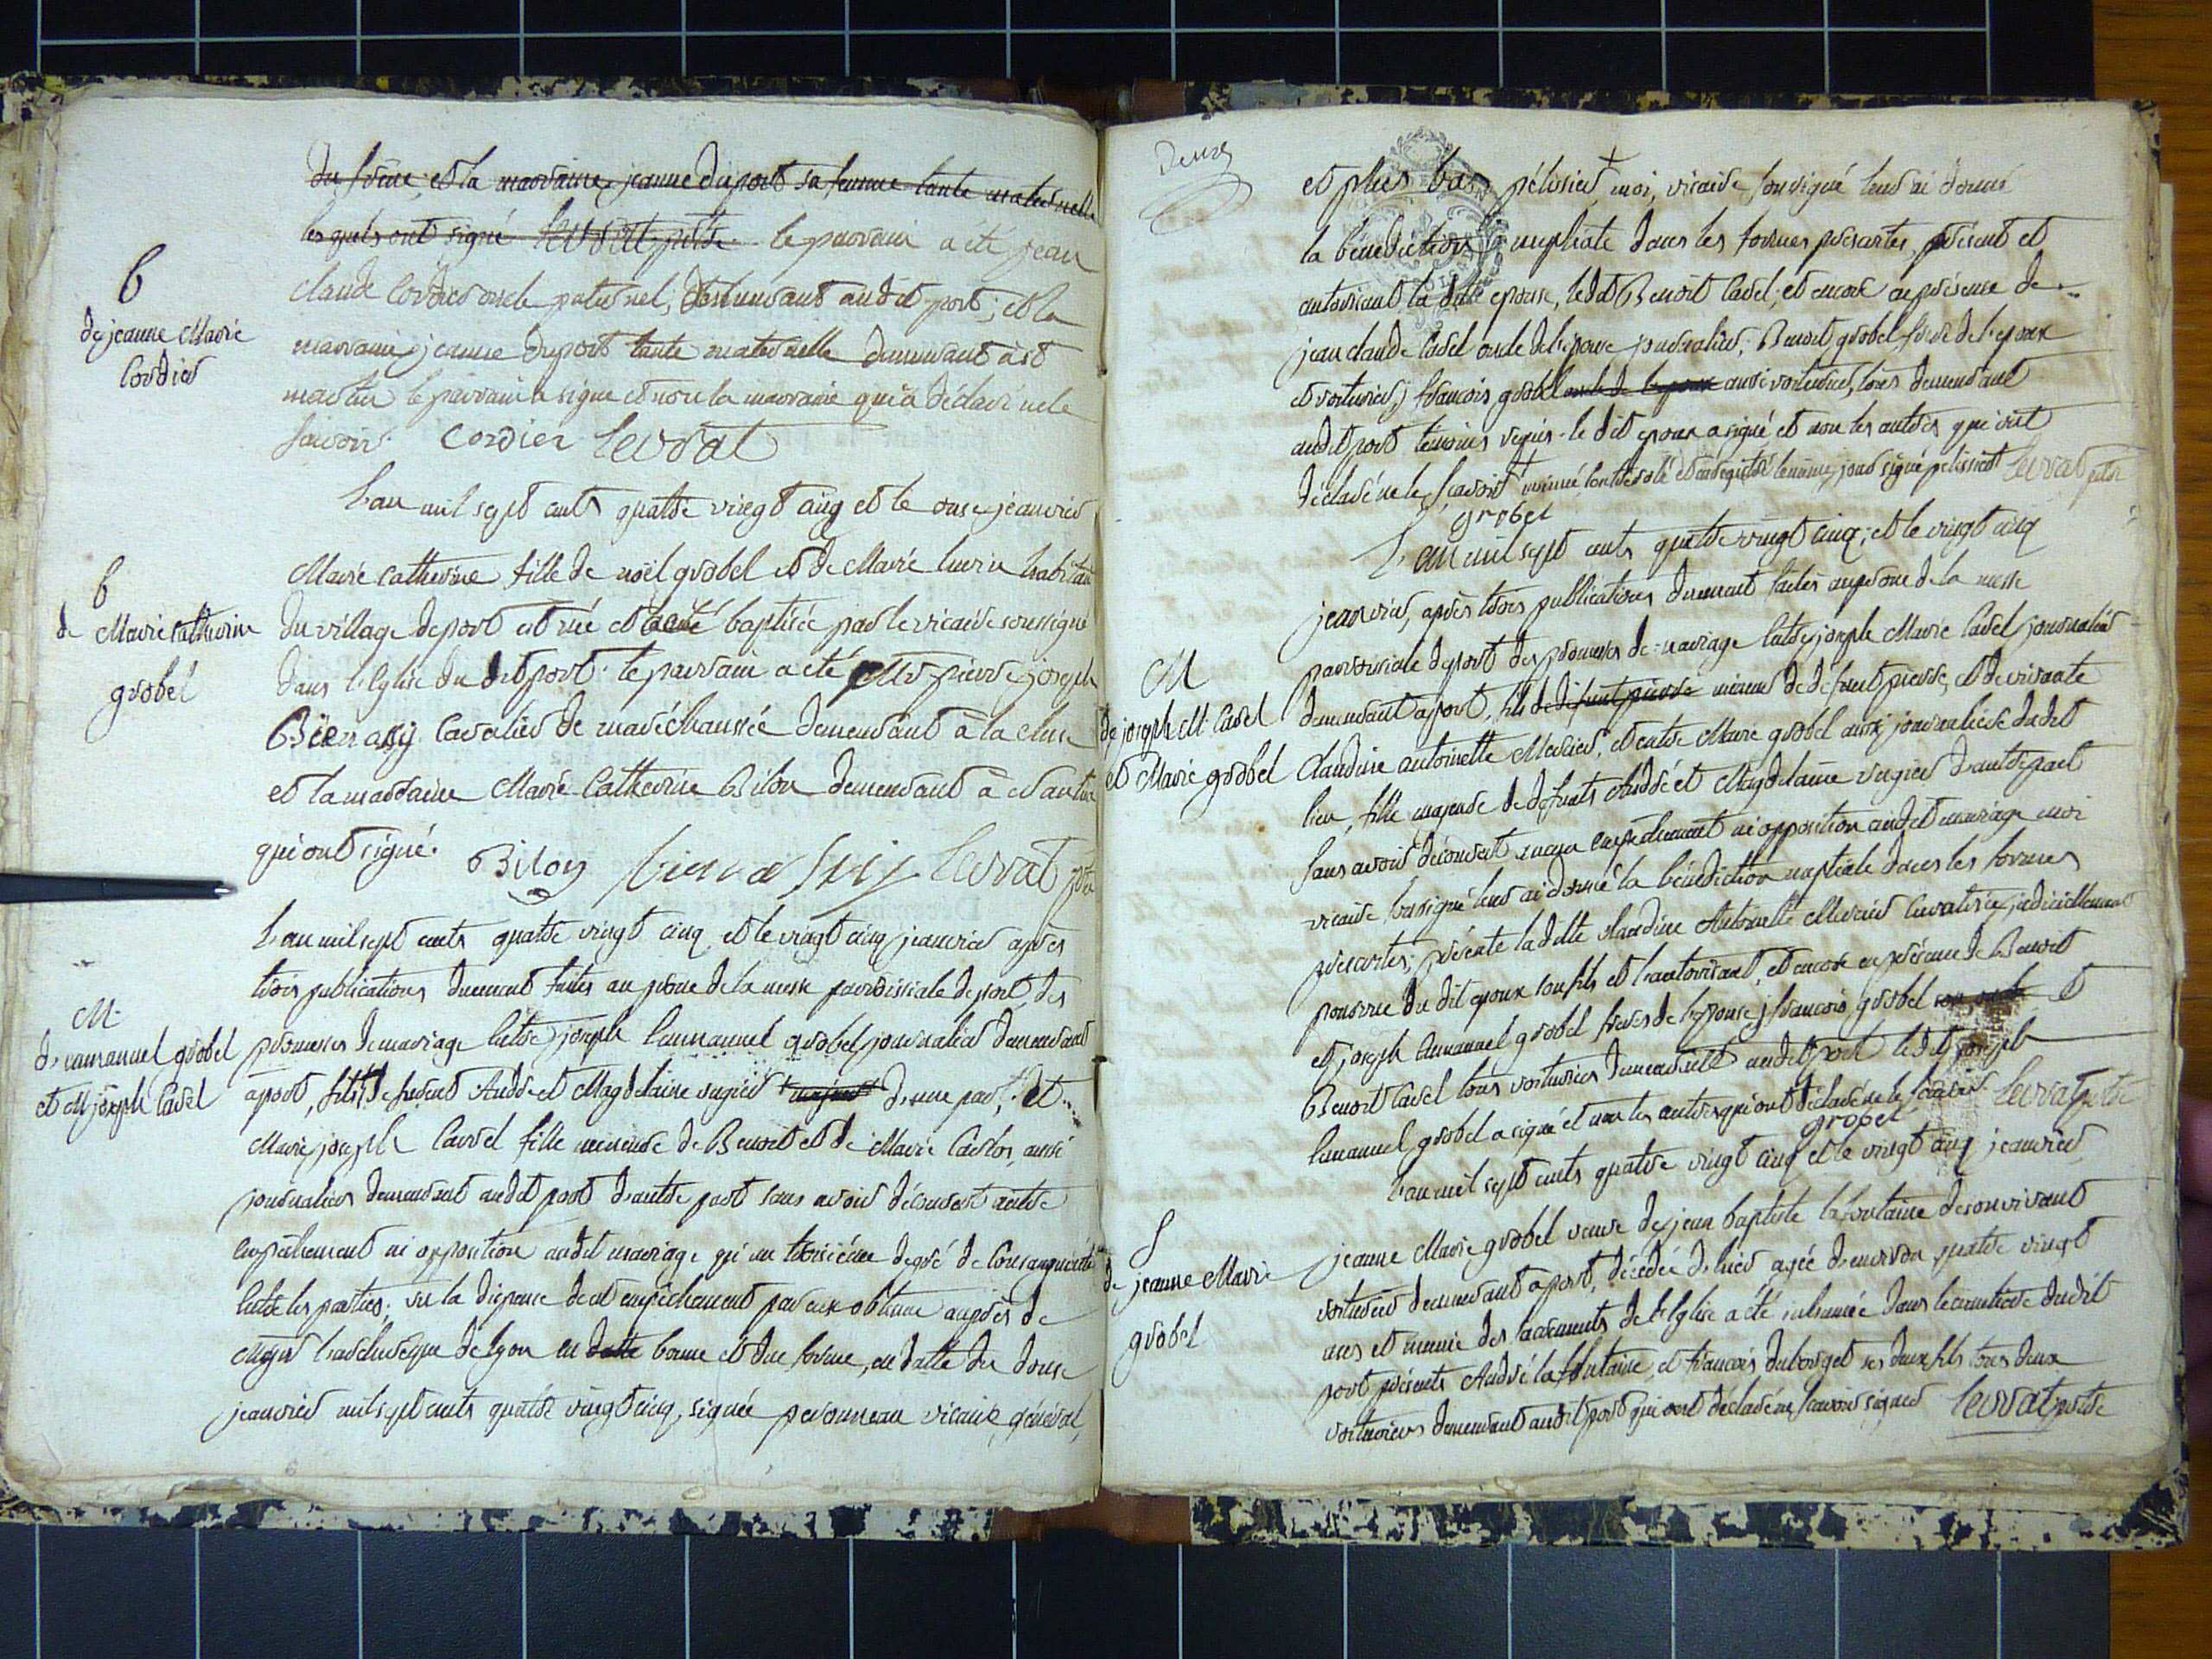 du frere, et la marraine jeanne duport sa femme tante maternelle
les quels ont signé levrat ptre le parrain a été jean
B
de jeanne Marie
Cordier
claude Cordier oncle paternel, demeurant audit port; et la
marraine jeanne duport tante maternelle demeurant à st
martin le parrain a signé et non la marraine qui a déclaré ne le
sçavoir. Cordier Levrat
L'an mil sept cents quatre vingt cinq et le onse jeanvier
B
de Marie Catherine
grobel
Marie Catherine fille de noël grobel et de Marie habitant
du village de port est née et a été baptisée par le vicaire soussigné
dans l'Eglise du dit port. le parrain a été Mr pierre joseph
cavalier de maréchaussée demeurant à la cluse
et la marraine Marie Catherine Bilon demeurant à Nantua
qui ont signé. Bilon Levrat ptre
M
d'emmanuel grobel
et M joseph Cavel
L'an mil sept cents quatre vingt cinq et le vingt cinq jeanvier après
trois publications duement faites au prone de la messe parroissiale de port, des
promesses de mariage entre joseph Emmanuel grobel journalier demeurant
a port, fils de André et Magdelaine vugier majeur d'une part, et
Marie joseph Cavel fille mineure de Benoit et de Marie Carlos, aussi
journaliers demeurant audit port d'autre part sans avoir découvert autre
empêchement ni opposition audit mariage qu'un troisième degré de consanguinité
entre les parties; vu la dispense de cet empêchement par eux obtenue auprès de
Mgr l'archevêque de lyon en datte bonne et due forme, en datte du douse
jeanvier mil sept cents quatre vingt cinq, signée vicaire général,
Deux
et plus bas pelissier moi, vicaire soussigné leur ai donné
la bénédiction nuptiale dans les formes prescrites, présent et
autorisant la dite epouse, le dit Benoit Cavel, et encore en présence de
jean claude Cavel oncle de l'epouse journalier; Benoit grobel frere de l'epoux
et voiturier, francois grobel oncle de lepoux aussi voiturier, tous demeurant
audit port temoins requis. le dit epoux a signé et non les autres qui ont
déclaré ne le sçavoir insinué controlé et enregistré le même jour signé pelissier Levrat ptre
grobel
L'an mil sept cents quatre vingt cinq; et le vingt cinq
M
de joseph M Cavel
et Marie grobel
jeanvier, après trois publications duement faites au prone de la messe
parroissiale de port des promesses de mariage entre joseph Marie Cavel journalier
demeurant a port, fils de defunt pierre mineur de défunt pierre, et de vivante
Claudine antoinette Mercier, et entre Marie grobel aussi journaliere dudit
lieu, fille majeure de defunts André et Magdelaine vugier d'autre part
sans avoir découvert aucun empêchement ni opposition audit mariage moi
vicaire soussigné leur ai donné la bénédiction nuptiale dans les formes
prescrites; présente la dite claudine Antoinette Mercier curatrice judiciellement
pourvue du dit epoux son fils et l'autorisant, et encore en présence de Benoit
et joseph Emmanuel grobel freres de l'epouse, francois grobel son oncle et
Benoit Cavel tous voituriers demeurant audit port ledit joseph
Emanuel grobel a signé et non les autres qui ont déclaré ne le sçavoir Levrat ptre
grobel
L'an mil sept cents quatre vingt cinq et le vingt cinq jeanvier
S
de jeanne Marie
grobel
jeanne Marie grobel veuve de jean baptiste lafontaine de son vivant
voiturier demeurant a port, décédée d'hier agée d'environ quatre vingt
ans et munie des sacrements de l'Eglise a été inhumée dans le cimetiere dudit
port présents André lafontaine, et francois dubourget ses deux fils tous deux
voituriers demeurant audit port qui ont déclaré ne sçavoir signer Levrat ptre